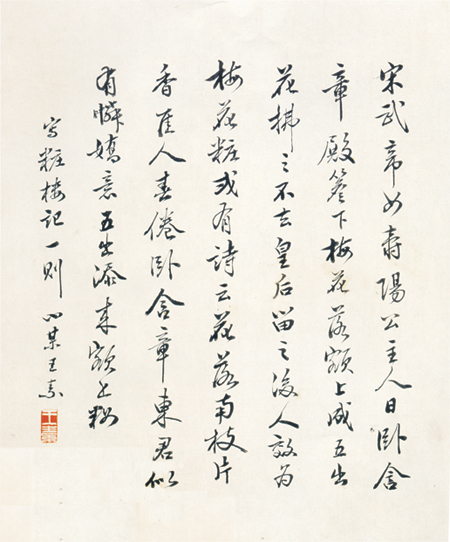 宋武帝女壽陽公主人日卧含
章殿簷下梅花落額上成五出
花拂之不去皇后留之後人效為
梅花粧或有詩云花落南枝片
香佳人春倦卧含章東君似
有憐嬌意五出添來額上粧
寫粧樓記一則 小某王素
王素